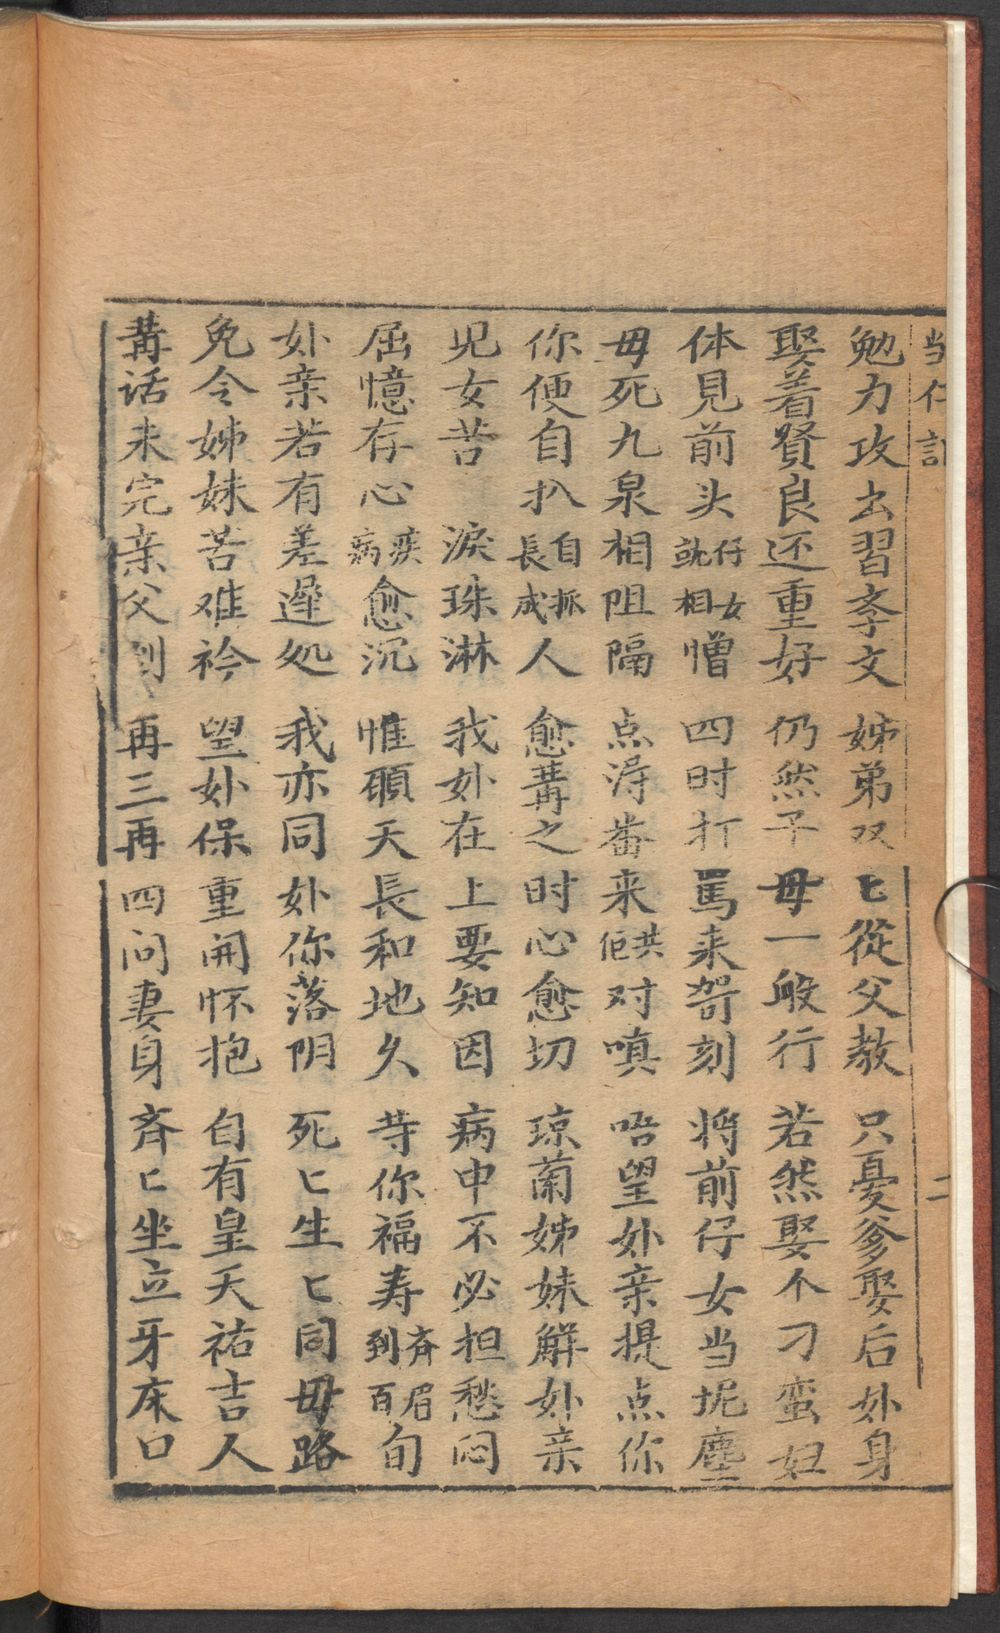 当仁記 二
勉力攻书習斈文 姊弟双匕從父教 只憂爹娶后𡛟身
娶着賢良还重好 仍然子母一般行 若然娶个刁蛮妇
体見前头仔女就相憎 四时打罵来苛刻 将前仔女当坭塵
母死九泉相阻隔 点得番来共佢对嗔 唔望𡛟亲提点你
你便自扒自抓長成人 愈講之时心愈切 琼蘭姊妹解𡛟亲
児女苦 淚珠淋 我𡛟在上要知因 病中不必担愁闷
屈憶存心疾病愈沉 惟願天長和地久 等你福寿斉眉到百旬
𡛟亲若有差遲处 我亦同𡛟你落阴 死匕生匕同毋路
免令姊妹苦难衿 望𡛟保重開怀抱 自有皇天祐吉人
講话未完亲父到 再三再四问妻身 斉匕坐立牙床口